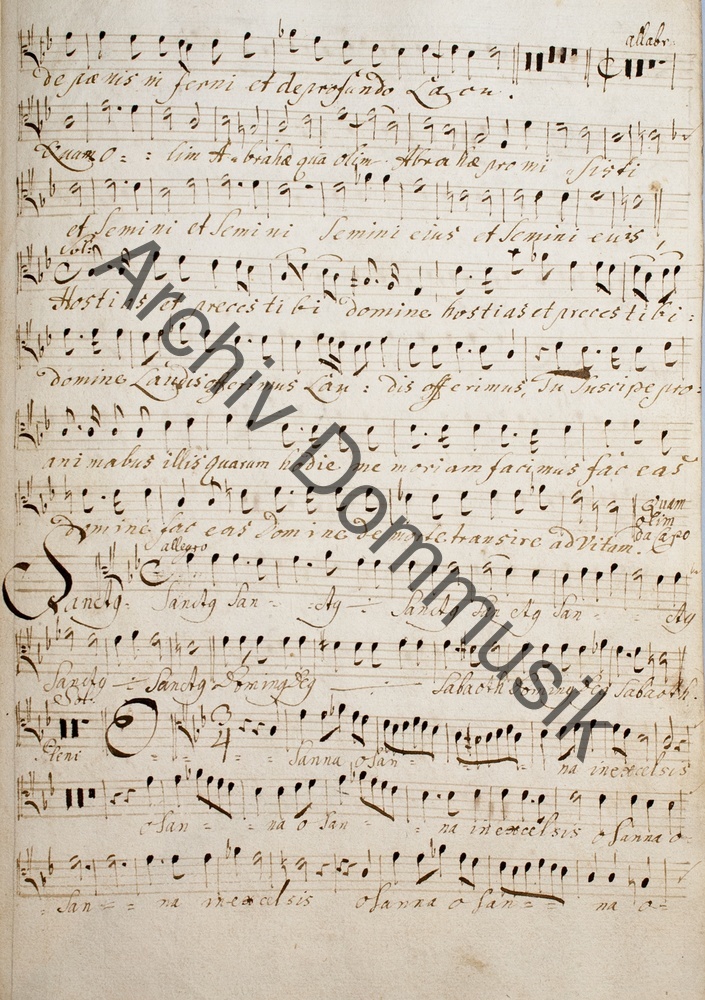 allabr
de pœnis in ferni et de profundo Lacu.
Quam o = = lim Abrahæ qua olim Abrahæ pro mi = sisti
et Semini et Semini Semini eius et Semini eius,
Solo
Hostias et preces ti bi domine hostias et preces tibi =
domine Laudis offerimus Lau = dis offerimus, Tu Suscipe pro =
ani mabus illis quarum hodie me moriam facimus fac eas
domine fac eas Domine de morte transire ad Vitam.
Quam
olim
da Capo
allegro
Sanctq Sanctq San = = ctq Sanctq San ctq San = = ctq
Sanctq Sanctq Domin9 De9 Sabaoth Domin9 De9 Sabaoth.
Pleni O = = Sanna, o San = = = na in excelsis
o San = = na o San = = na in excelsis o Sanna o =
= San = = na in excelsis o Sanna o San = = na o =
Archiv Dommusik